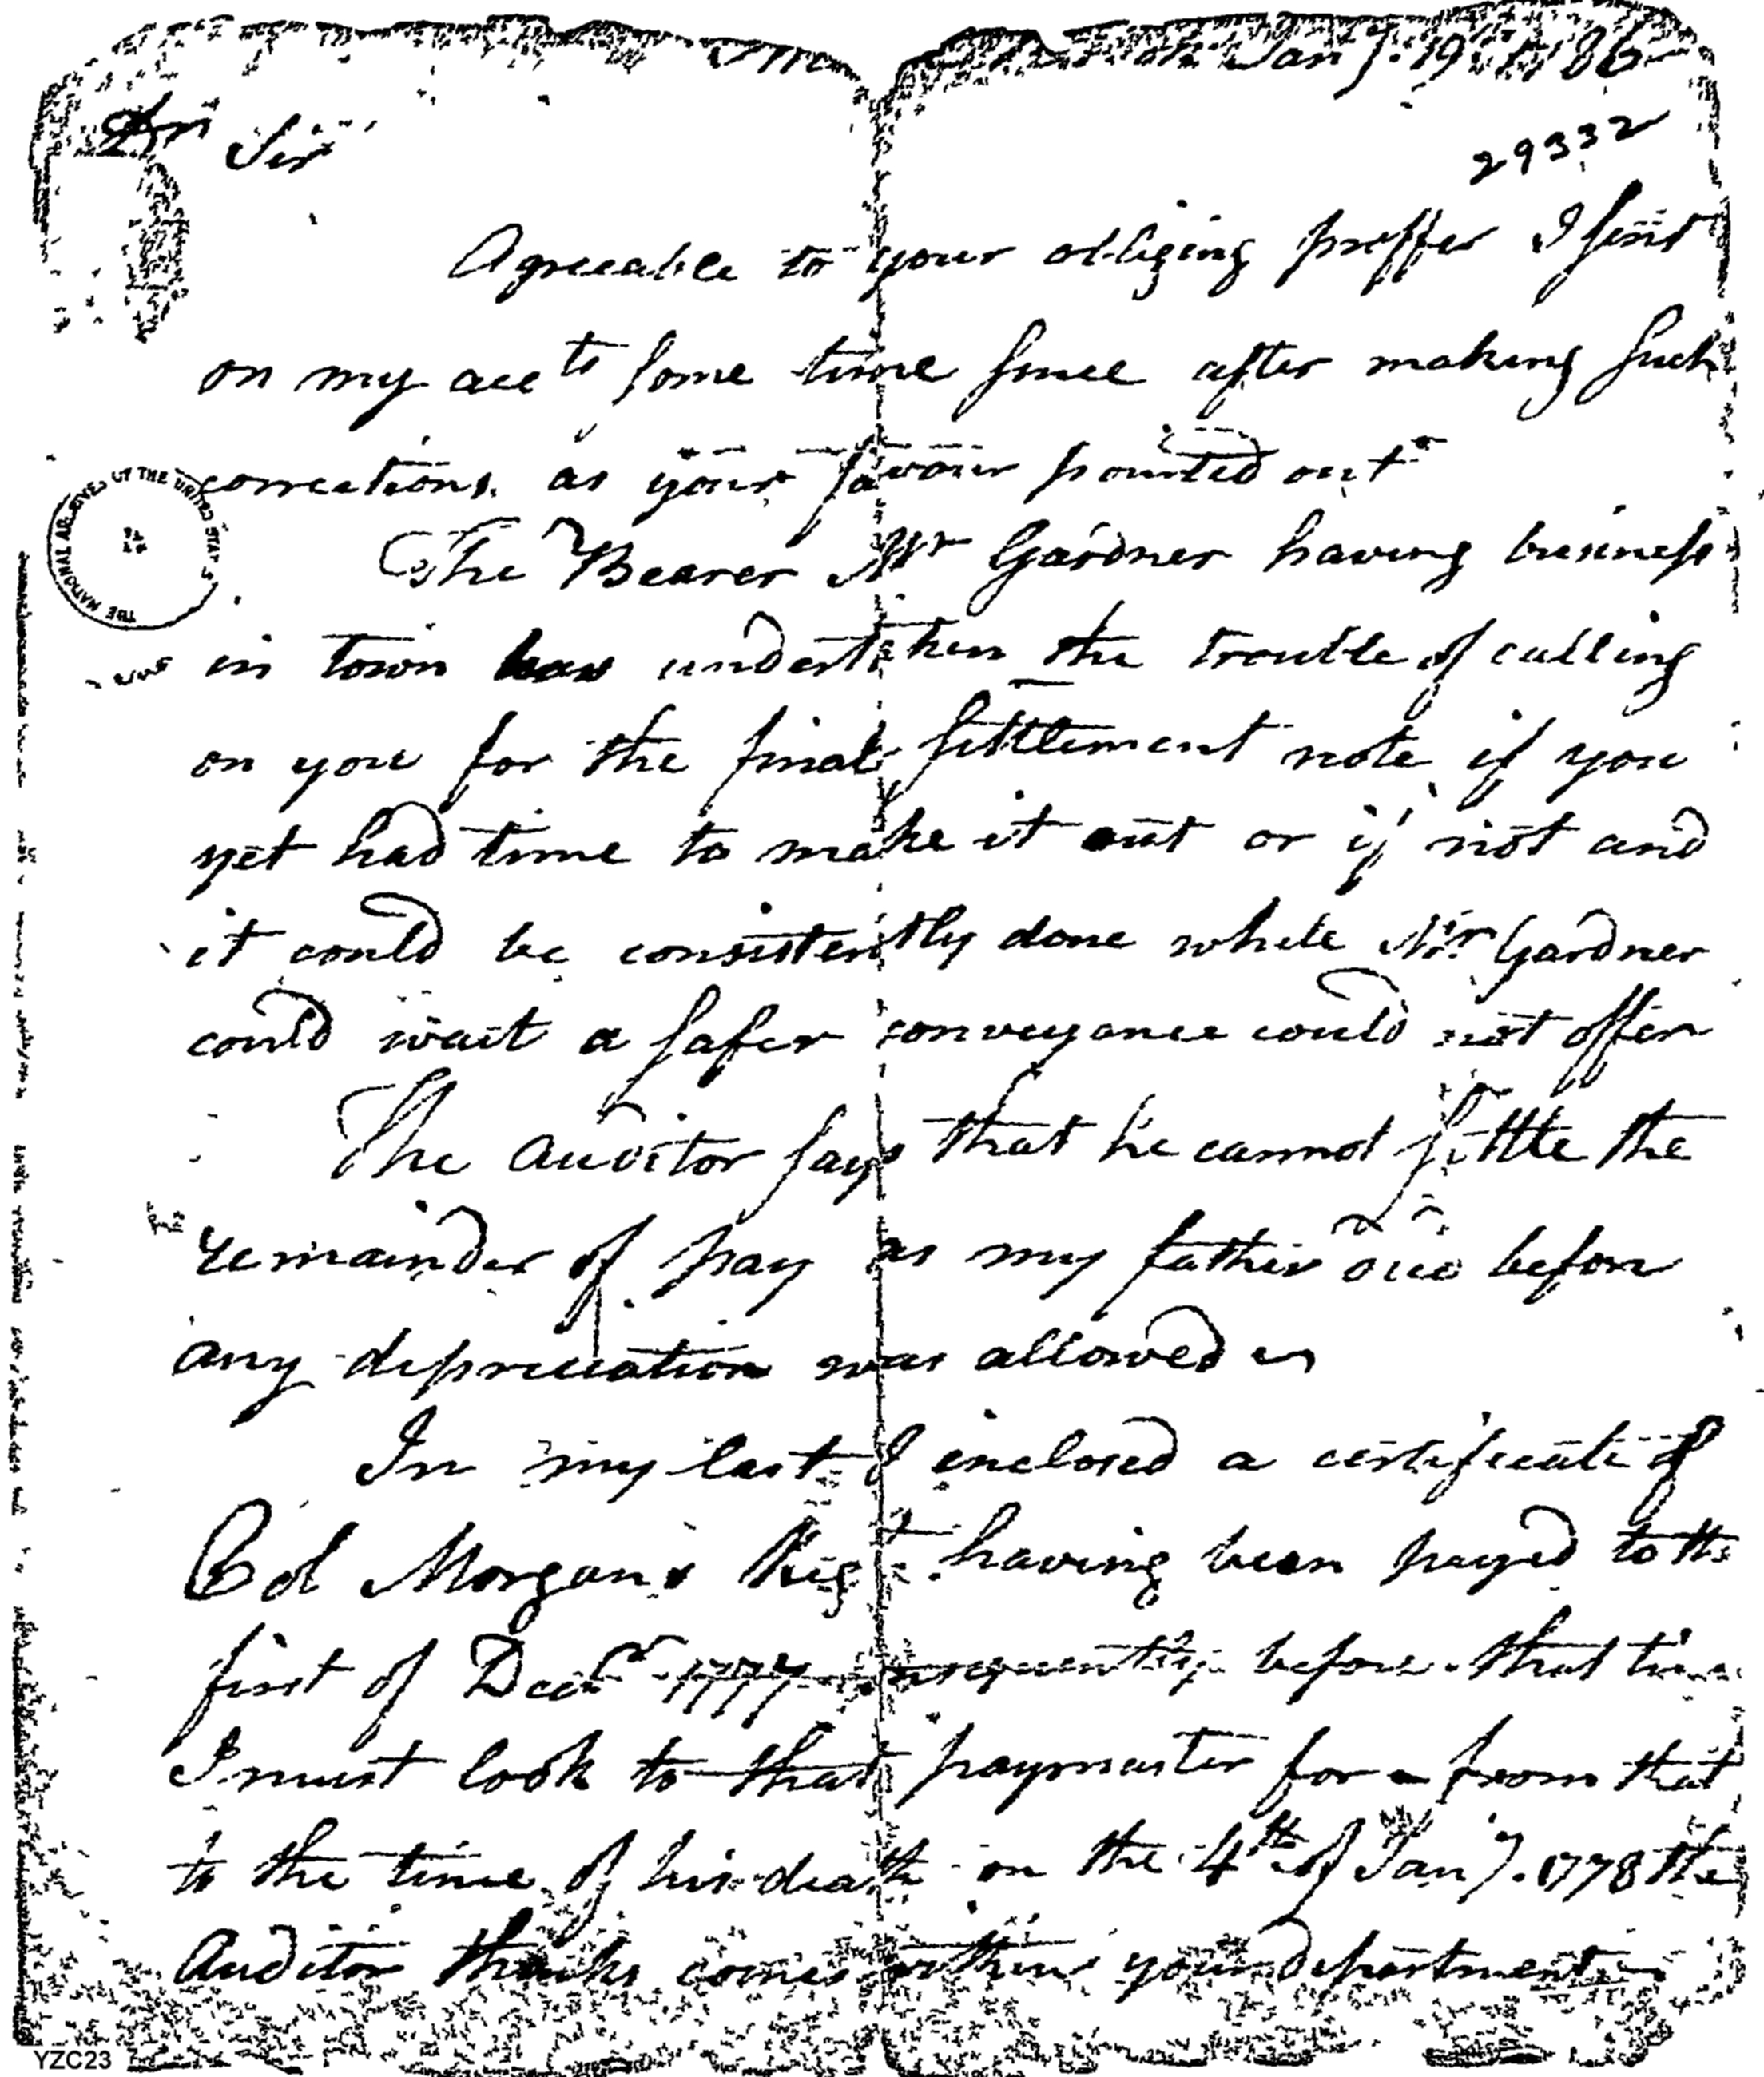 Jany. 19th 1786
Dr Sir
29332
Agreeable to your obliging proffer I sent
on my accts some time since after making such
corrections as your favour pointed out
The Bearer Mr Gardner having business
in town has undertaken the trouble of calling
on you for the final settlement note if you
yet had time to make it out or if not and
it could be consistently done while Mr. Gardner
could wait a safer conveyance could not offer
The Auditor says that he cannot settle the
remainder of pay as my father died before
any depreciation was allowed
In my last I enclosed a certificate of
Col Morgans Regt having been payed to the
first of Decbr 1777 consequently before that time
I must look to that paymaster for from that
to the time of his death on the 4th of Jany. 1778 the
Auditor thinks comes within your department
THE NATIONAL ARCHIVES OF THE UNITED STATES
YZC23